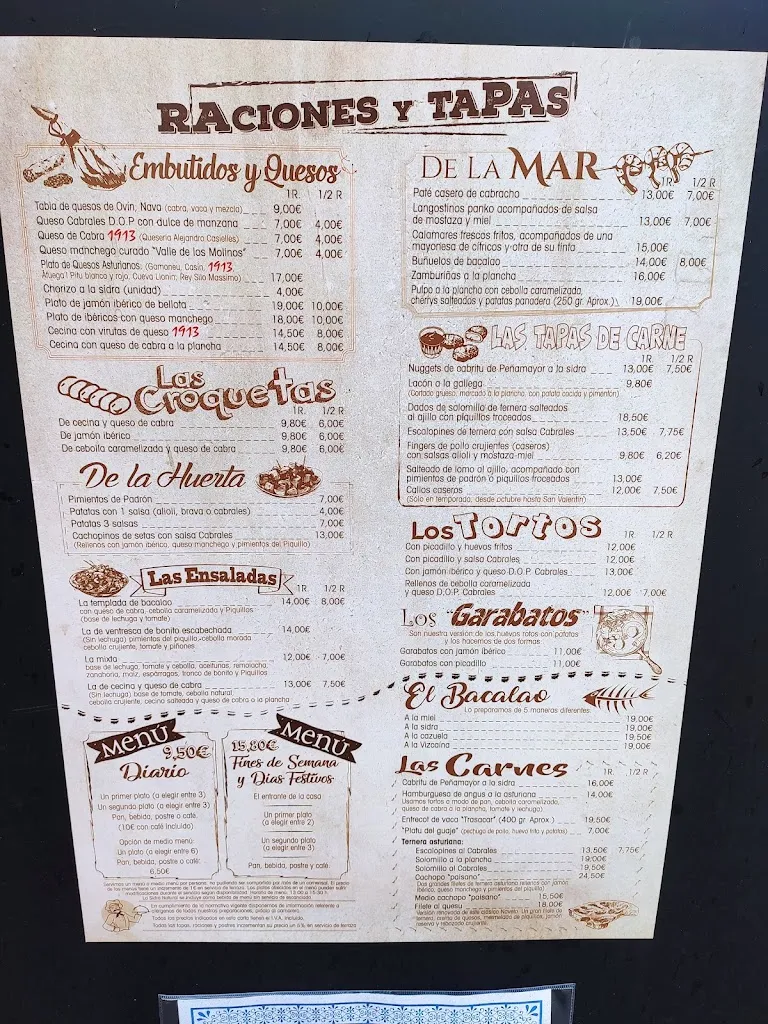 RACIONES Y TAPAS
Embutidos y Quesos
1R. 1/2 R
Tabla de quesos de Ovin, Nava (cabra, vaca y mezcla) 9,00€
Queso Cabrales D.O.P con dulce de manzana 7,00€ 4,00€
Queso de Cabra 1913 (Quesería Alejandro Casielles) 7,00€ 4,00€
Queso manchego curado "Valle de los Molinos" 7,00€ 4,00€
Plato de Quesos Asturianos: (Gamoneu, Casín, 1913,
Afuega'l Pitu blanco y rojo, Cueva Llonín, Rey Silo Massimo) 17,00€
Chorizo a la sidra (unidad) 4,00€
Plato de jamón ibérico de bellota 19,00€ 10,00€
Plato de ibéricos con queso manchego 18,00€ 10,00€
Cecina con virutas de queso 1913 14,50€ 8,00€
Cecina con queso de cabra a la plancha 14,50€ 8,00€
Las Croquetas
1R. 1/2 R
De cecina y queso de cabra 9,80€ 6,00€
De jamón ibérico 9,80€ 6,00€
De cebolla caramelizada y queso de cabra 9,80€ 6,00€
De la Huerta
Pimientos de Padrón 7,00€
Patatas con 1 salsa (alioli, brava o cabrales) 4,00€
Patatas 3 salsas 7,00€
Cachopinos de setas con salsa Cabrales 13,00€
(Rellenos con jamón ibérico, queso manchego y pimientos del Piquillo)
Las Ensaladas
1R 1/2 R
La templada de bacalao 14,00€ 8,00€
con queso de cabra, cebolla caramelizada y Piquillos
(base de lechuga y tomate)
La de ventresca de bonito escabechada 14,00€
(Sin lechuga) pimientos del piquillo, cebolla morada
cebolla crujiente, tomate y piñones
La mixta 12,00€ 7,00€
base de lechuga, tomate y cebolla, aceitunas, remolacha,
zanahoria, maíz, espárragos, tronco de bonito y Piquillos
La de cecina y queso de cabra 13,00€ 7,50€
(Sin lechuga) base de tomate, cebolla natural,
cebolla crujiente, cecina salteada y queso de cabra a la plancha
MENÚ
9,50€
Diario
Un primer plato (a elegir entre 3)
Un segundo plato (a elegir entre 3)
Pan, bebida, postre o café.
(10€ con café incluido)
Opción de medio menú:
Un plato (a elegir entre 6)
Pan, bebida, postre o café:
6,50€
MENÚ
15,80€
Fines de Semana
y Días Festivos
El entrante de la casa
Un primer plato
(a elegir entre 2)
Un segundo plato
(a elegir entre 3)
Pan, bebida, postre y café
En cumplimiento de la normativa vigente disponemos de información referente a
alérgenos de todas nuestras preparaciones, pídala al camarero.
Todos los precios indicados en esta carta tienen el I.V.A. incluido.
Todas las tapas, raciones y postres incrementan su precio un 5% en servicio de terraza
DE LA MAR
1R. 1/2 R
Paté casero de cabracho 13,00€ 7,00€
Langostinos panko acompañados de salsa
de mostaza y miel 13,00€ 7,00€
Calamares frescos fritos, acompañados de una
mayonesa de cítricos y otra de su tinta 15,00€
Buñuelos de bacalao 14,00€ 8,00€
Zamburiñas a la plancha 16,00€
Pulpo a la plancha con cebolla caramelizada,
cherrys salteados y patatas panadera (250 gr. Aprox.) 19,00€
LAS TAPAS DE CARNE
1R. 1/2 R
Nuggets de cabritu de Peñamayor a la sidra 13,00€ 7,50€
Lacón a la gallega 9,80€
(Cortado grueso, marcado a la plancha, con patata cocida y pimentón)
Dados de solomillo de ternera salteados
al ajillo con piquillos troceados 18,50€
Escalopines de ternera con salsa Cabrales 13,50€ 7,75€
Fingers de pollo crujientes (caseros)
con salsas alioli y mostaza-miel 9,80€ 6,20€
Salteado de lomo al ajillo, acompañado con
pimientos de padrón o piquillos troceados 13,00€
Callos caseros 12,00€ 7,50€
(Sólo en temporada, desde octubre hasta San Valentín)
Los Tortos
1R 1/2 R
Con picadillo y huevos fritos 12,00€
Con picadillo y salsa Cabrales 12,00€
Con jamón ibérico y queso D.O.P. Cabrales 13,00€
Rellenos de cebolla caramelizada
y queso D.O.P. Cabrales 12,00€ 7,00€
Los "Garabatos"
Son nuestra versión de los huevos rotos con patatas
y los hacemos de dos formas:
Garabatos con jamón ibérico 11,00€
Garabatos con picadillo 11,00€
El Bacalao
Lo preparamos de 5 maneras diferentes:
A la miel 19,00€
A la sidra 19,00€
A la cazuela 19,50€
A la Vizcaína 19,00€
Las Carnes
1R. 1/2 R
Cabritu de Peñamayor a la sidra 16,00€
Hamburguesa de angus a la asturiana 14,00€
Usamos tortos a modo de pan, cebolla caramelizada,
queso de cabra a la plancha, tomate y lechuga)
Entrecot de vaca "Trasacar" (400 gr. Aprox.) 19,50€
"Platu del guaje" (pechuga de pollo, huevo frito y patatas) 7,00€
Ternera asturiana:
Escalopines al Cabrales 13,50€ 7,75€
Solomillo a la plancha 19,00€
Solomillo al Cabrales 19,50€
Cachopo "paisano" 24,50€
Dos grandes filetes de ternera asturiana rellenos con jamón
ibérico, queso manchego y pimientos del piquillo)
Medio cachopo "paisano" 15,50€
Filete al quesu 18,00€